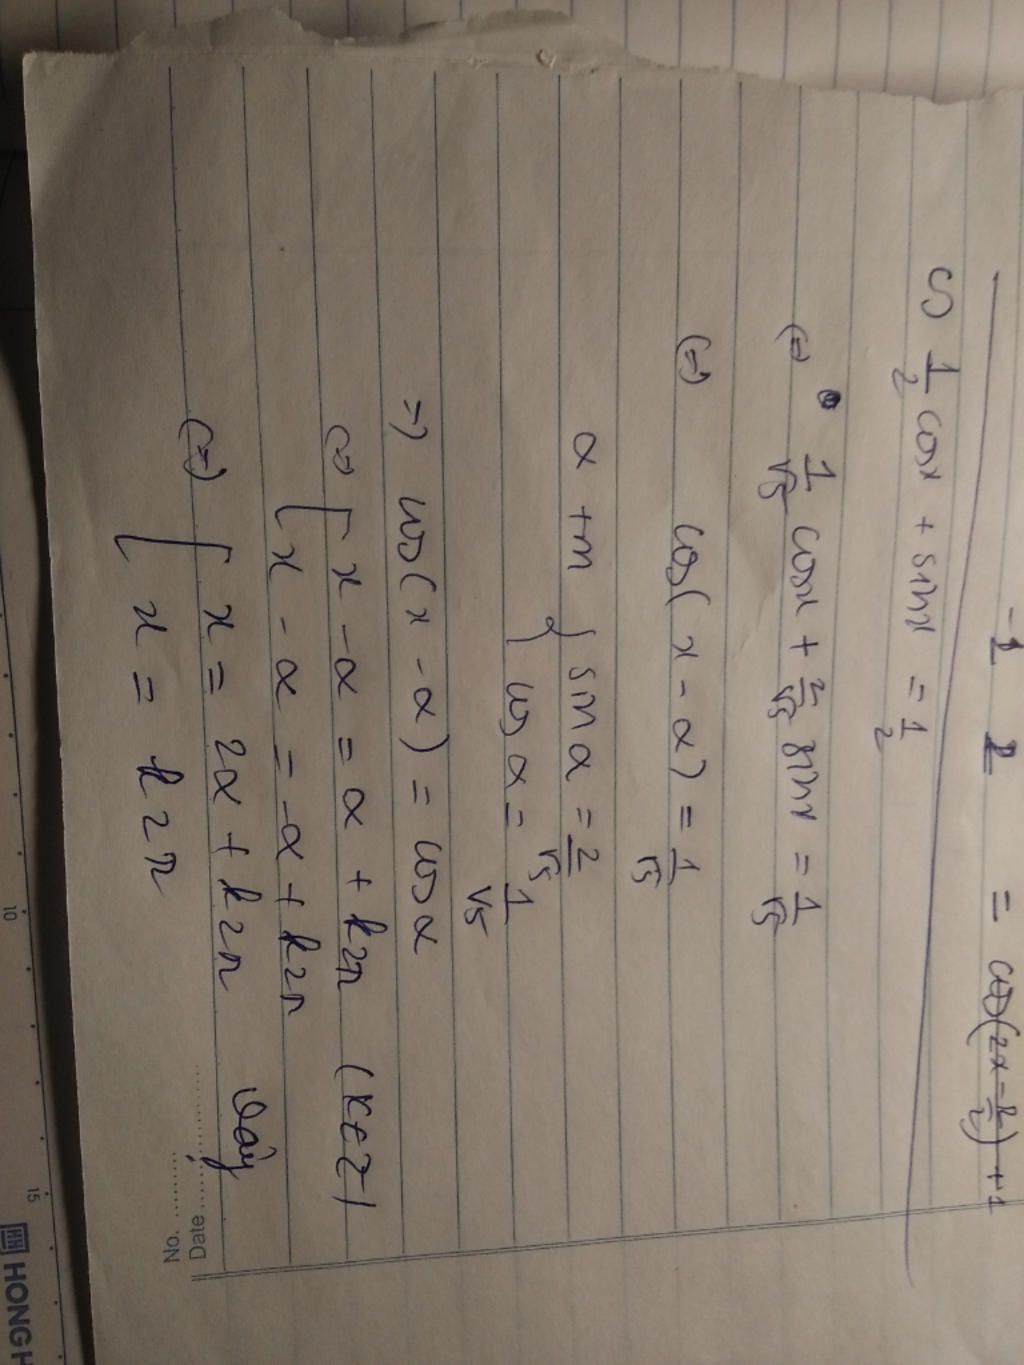 -1 2 = cos(2x - π/2) + 1
5) 1/2 cosx + sinx = 1/2
(=) 1/√5 cosx + 2/√5 sinx = 1/√5
(=) cos(x - α) = 1/√5
α +m { sin α = 2/√5
cos α = 1/√5
=) cos(x - α) = cos α
(=) [ x - α = α + k2π (k∈Z)
x - α = -α + k2π
(=) [ x = 2α + k2π Vậy
x = k2π
No. ........
Date ................
10
15
HH HONG H